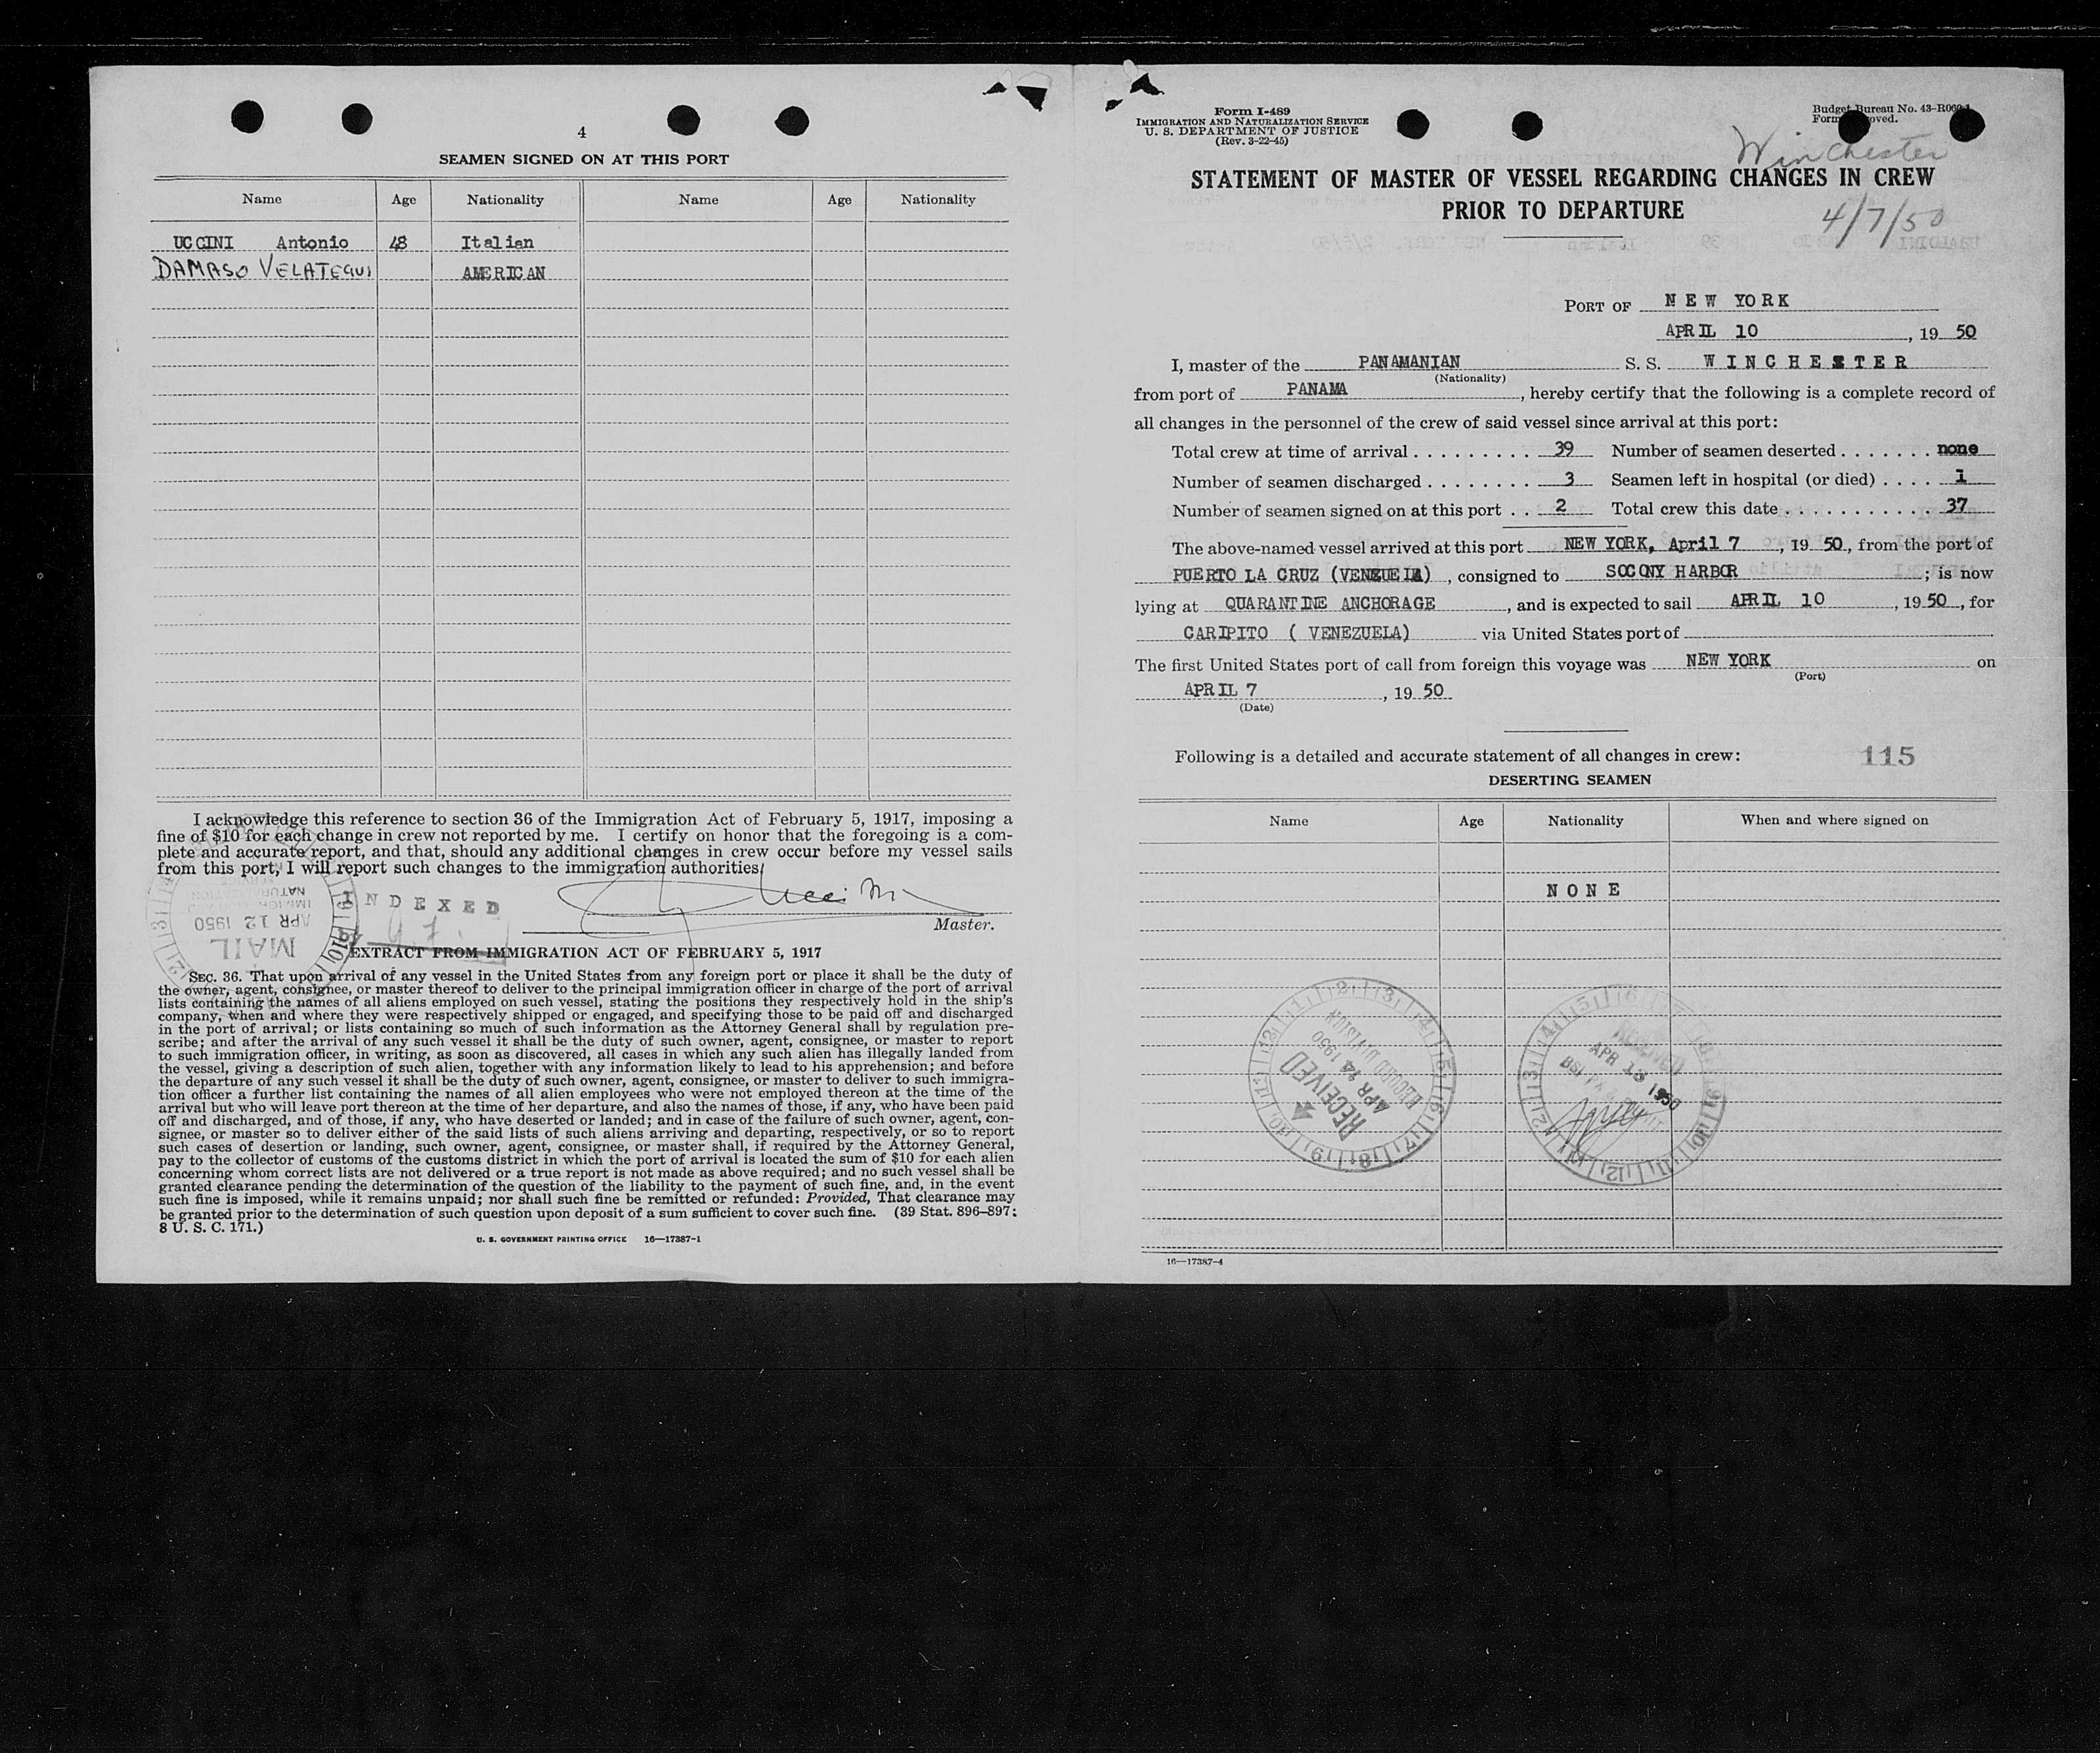 4
SEAMEN SIGNED ON AT THIS PORT
Name Age Nationality Name Age Nationality
UCCINI Antonio 48 Italian
DAMASO VELATEGUI AMERICAN
I acknowledge this reference to section 36 of the Immigration Act of February 5, 1917, imposing a
fine of $10 for each change in crew not reported by me. I certify on honor that the foregoing is a com-
plete and accurate report, and that, should any additional changes in crew occur before my vessel sails
from this port, I will report such changes to the immigration authorities.
INDEXED
APR 12 1950
MAIL
Master.
EXTRACT FROM IMMIGRATION ACT OF FEBRUARY 5, 1917
SEC. 36. That upon arrival of any vessel in the United States from any foreign port or place it shall be the duty of
the owner, agent, consignee, or master thereof to deliver to the principal immigration officer in charge of the port of arrival
lists containing the names of all aliens employed on such vessel, stating the positions they respectively hold in the ship's
company, when and where they were respectively shipped or engaged, and specifying those to be paid off and discharged
in the port of arrival; or lists containing so much of such information as the Attorney General shall by regulation pre-
scribe; and after the arrival of any such vessel it shall be the duty of such owner, agent, consignee, or master to report
to such immigration officer, in writing, as soon as discovered, all cases in which any such alien has illegally landed from
the vessel, giving a description of such alien, together with any information likely to lead to his apprehension; and before
the departure of any such vessel it shall be the duty of such owner, agent, consignee, or master to deliver to such immigra-
tion officer a further list containing the names of all alien employees who were not employed thereon at the time of the
arrival but who will leave port thereon at the time of her departure, and also the names of those, if any, who have been paid
off and discharged, and of those, if any, who have deserted or landed; and in case of the failure of such owner, agent, con-
signee, or master so to deliver either of the said lists of such aliens arriving and departing, respectively, or so to report
such cases of desertion or landing, such owner, agent, consignee, or master shall, if required by the Attorney General,
pay to the collector of customs of the customs district in which the port of arrival is located the sum of $10 for each alien
concerning whom correct lists are not delivered or a true report is not made as above required; and no such vessel shall be
granted clearance pending the determination of the question of the liability to the payment of such fine, and, in the event
such fine is imposed, while it remains unpaid; nor shall such fine be remitted or refunded: Provided, That clearance may
be granted prior to the determination of such question upon deposit of a sum sufficient to cover such fine. (39 Stat. 896–897;
8 U. S. C. 171.)
U. S. GOVERNMENT PRINTING OFFICE 16—17387-1
Form I-489
IMMIGRATION AND NATURALIZATION SERVICE
U. S. DEPARTMENT OF JUSTICE
(Rev. 3-22-45)
Budget Bureau No. 43-R060
Winchester
STATEMENT OF MASTER OF VESSEL REGARDING CHANGES IN CREW
PRIOR TO DEPARTURE
4/7/50
PORT OF NEW YORK
APRIL 10, 19 50
I, master of the PANAMANIAN S. S. WINCHESTER
(Nationality)
from port of PANAMA, hereby certify that the following is a complete record of
all changes in the personnel of the crew of said vessel since arrival at this port:
Total crew at time of arrival . . . . . . . . . 39 Number of seamen deserted . . . . . . . none
Number of seamen discharged . . . . . . . . 3 Seamen left in hospital (or died) . . . . 1
Number of seamen signed on at this port . . 2 Total crew this date . . . . . . . . . . . 37
The above-named vessel arrived at this port NEW YORK, April 7, 19 50, from the port of
PUERTO LA CRUZ (VENEZUELA), consigned to SOCONY HARBOR; is now
lying at QUARANTINE ANCHORAGE, and is expected to sail APRIL 10, 19 50, for
CARIPITO ( VENEZUELA) via United States port of
The first United States port of call from foreign this voyage was NEW YORK on
(Port)
APRIL 7, 19 50
(Date)
Following is a detailed and accurate statement of all changes in crew: 115
DESERTING SEAMEN
Name Age Nationality When and where signed on
NONE
RECEIVED
APR 14 1950
RECORD DIVISION
APR 13 1950
16—17387-4